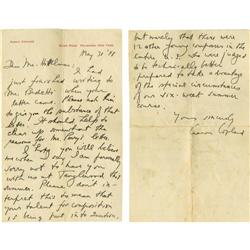 May 31 '48
Dear Mr. Hoffman:
I had
just finished writing to
Mr. Pedetti when your
letter came. Please ask him
to give you the substance of that
letter. It should help to
clear up somewhat the
reasons for Mr. letter.
I hope you will believe
me when I say I am personally
sorry not to have you
with us at Tanglewood this
summer. Please don't in-
terpret this to mean that
your talent for composition
is being put into question,
but merely that there were
12 other young composers in the
entire U.S. who were judged
to be technically better
prepared to take advantage
of the special circumstances
of our six-week summer
course.
Yours sincerely
Aaron Copland